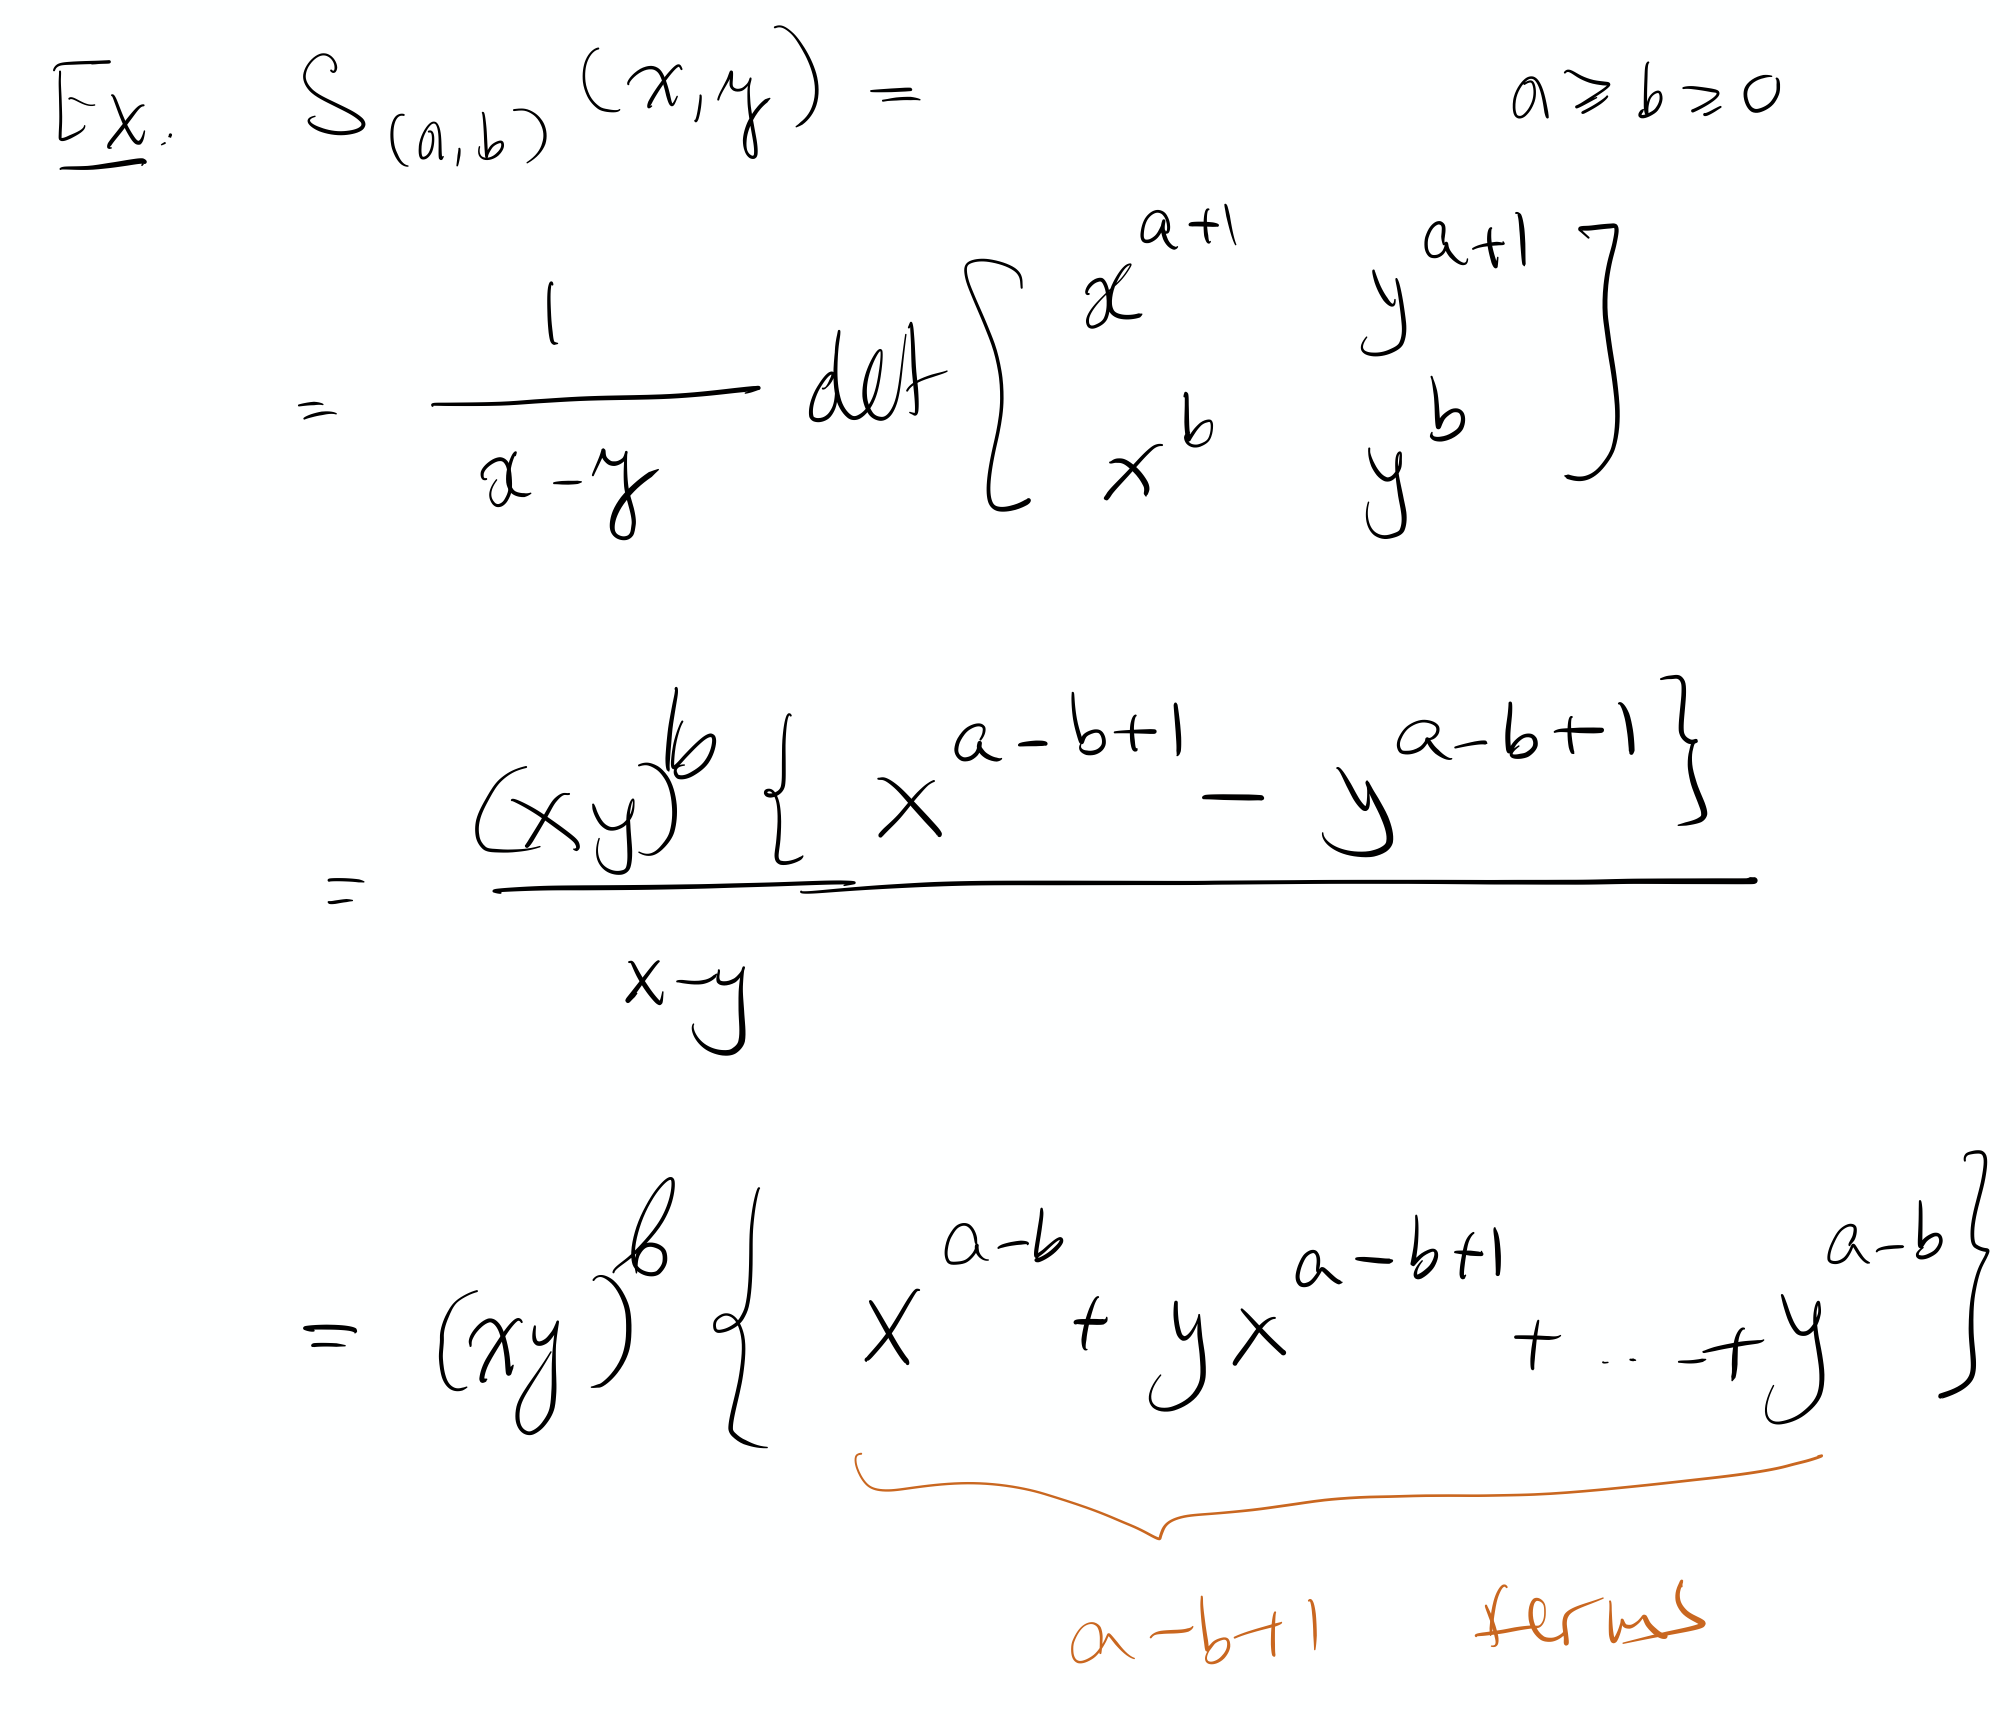 Ex. S_{(a,b)} (x, y) = a ≥ b ≥ 0
= \frac{1}{x - y} det \begin{bmatrix} x^{a+1} & y^{a+1} \\ x^b & y^b \end{bmatrix}
= \frac{(xy)^b \{ x^{a-b+1} - y^{a-b+1} \}}{x - y}
= (xy)^b \{ x^{a-b} + y x^{a-b+1} + ... + y^{a-b} \}
a-b+1 terms